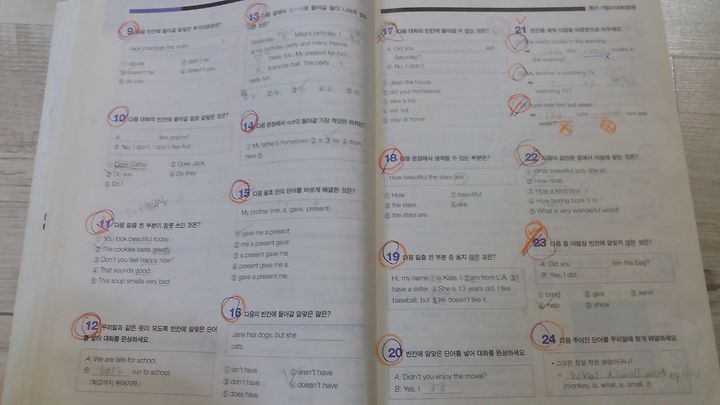 9 다음 빈칸에 들어갈 알맞은 부가의문문은?
Jack practices the violin, ?
① did he ② didn't he
③ doesn't he ④ doesn't you
⑤ do you
10 다음 대화의 빈칸에 들어갈 말로 알맞은 것은?
A: like grapes?
B: No, I don't. I don't like fruit.
① Does Cathy ② Does Jack
③ Do you ④ Do they
⑤ Do I
11 다음 밑줄 친 부분이 잘못 쓰인 것은?
① You look beautiful today.
② The cookies taste greatly.
③ Don't you feel happy now?
④ That sounds good.
⑤ This soup smells very bad.
12 우리말과 같은 뜻이 되도록 빈칸에 알맞은 단어
를 넣어 대화를 완성하세요.
A: We are late for school.
B: Let's run to school.
(학교까지 뛰어가자.)
13 다음 글에서 들어갈 말이
Yesterday Mike's birthday. I
at his birthday party and many friends
there, too. My present for him
a soccer ball. The party
really fun.
14 다음 문장에서 not이 들어갈 가장 적당한 위치는?
① My father's hometown ② is ③ far ④ from
here ⑤.
15 다음 괄호 안의 단어를 바르게 배열한 것은?
My brother (me, a, gave, present).
① gave me a present
② me a present gave
③ a present gave me
④ present gave me a
⑤ gave a present me
16 다음의 빈칸에 들어갈 알맞은 말은?
Jane has dogs, but she
cats.
① isn't have ② aren't have
③ don't have ④ doesn't have
⑤ does have
17 다음 대화의 빈칸에 들어갈 수 없는 것은?
A: Did you last
Saturday?
B: No, I didn't.
① clean the house
② did your homework
③ take a trip
④ eat out
⑤ stay at home
18 다음 문장에서 생략될 수 있는 부분은?
How beautiful the stars are!
① How ② beautiful
③ the stars ④ are
⑤ the stars are
19 다음 밑줄 친 부분 중 옳지 않은 것은?
Hi, my name ① is Kate. I ② am from L.A. ③ I
have a sister. ④ She is 13 years old. I like
baseball, but ⑤ he doesn't like it.
20 빈칸에 알맞은 단어를 넣어 대화를 완성하세요.
A: Didn't you enjoy the movie?
B: Yes, I did
21 빈칸을 채워 다음을 부정문으로 바꾸세요.
He reads books in the evening.
books in
the evening.
My brother is watching TV.
watching TV.
Yumi met him last week.
him last
week.
22 다음의 감탄문 중에서 어법에 맞는 것은?
① What beautiful lady she is!
② How nice!
③ How a kind boy!
④ How boring book it is!
⑤ What a very wonderful world!
23 다음 중 어법상 빈칸에 알맞지 않은 것은?
A: Did you him the bag?
B: Yes, I did.
① bring ② give ③ send
④ help ⑤ show
24 다음 주어진 단어를 우리말에 맞게 배열하세요.
• 그것은 정말 작은 원숭이구나!
→ What a small monkey it is
(monkey, is, what, a, small, it)